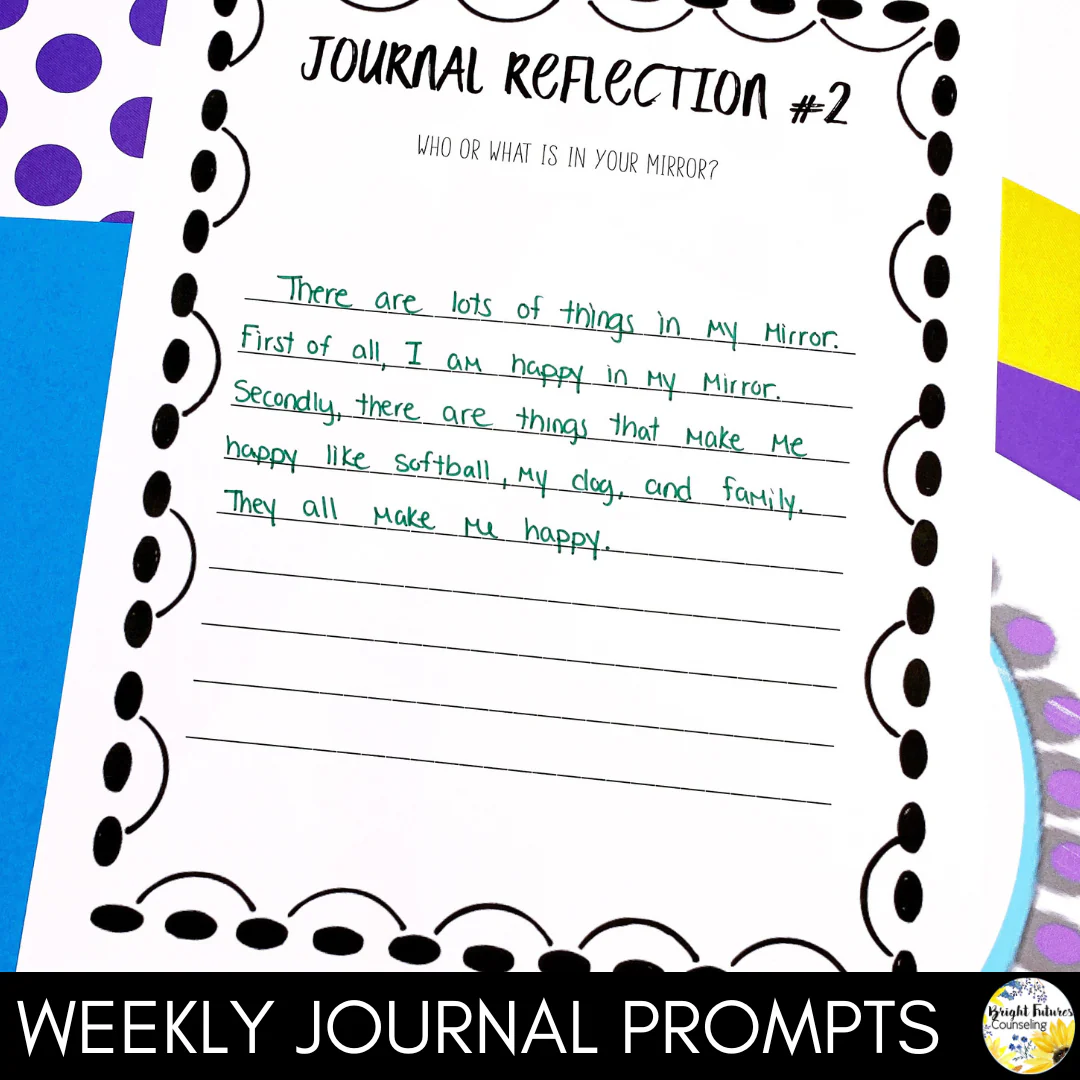 JOURNAL REFLECTION #2
WHO OR WHAT IS IN YOUR MIRROR?
There are lots of things in my mirror.
First of all, I am happy in my mirror.
Secondly, there are things that make me
happy like softball, my dog, and family.
They all make me happy.
WEEKLY JOURNAL PROMPTS
Bright Futures
Counseling